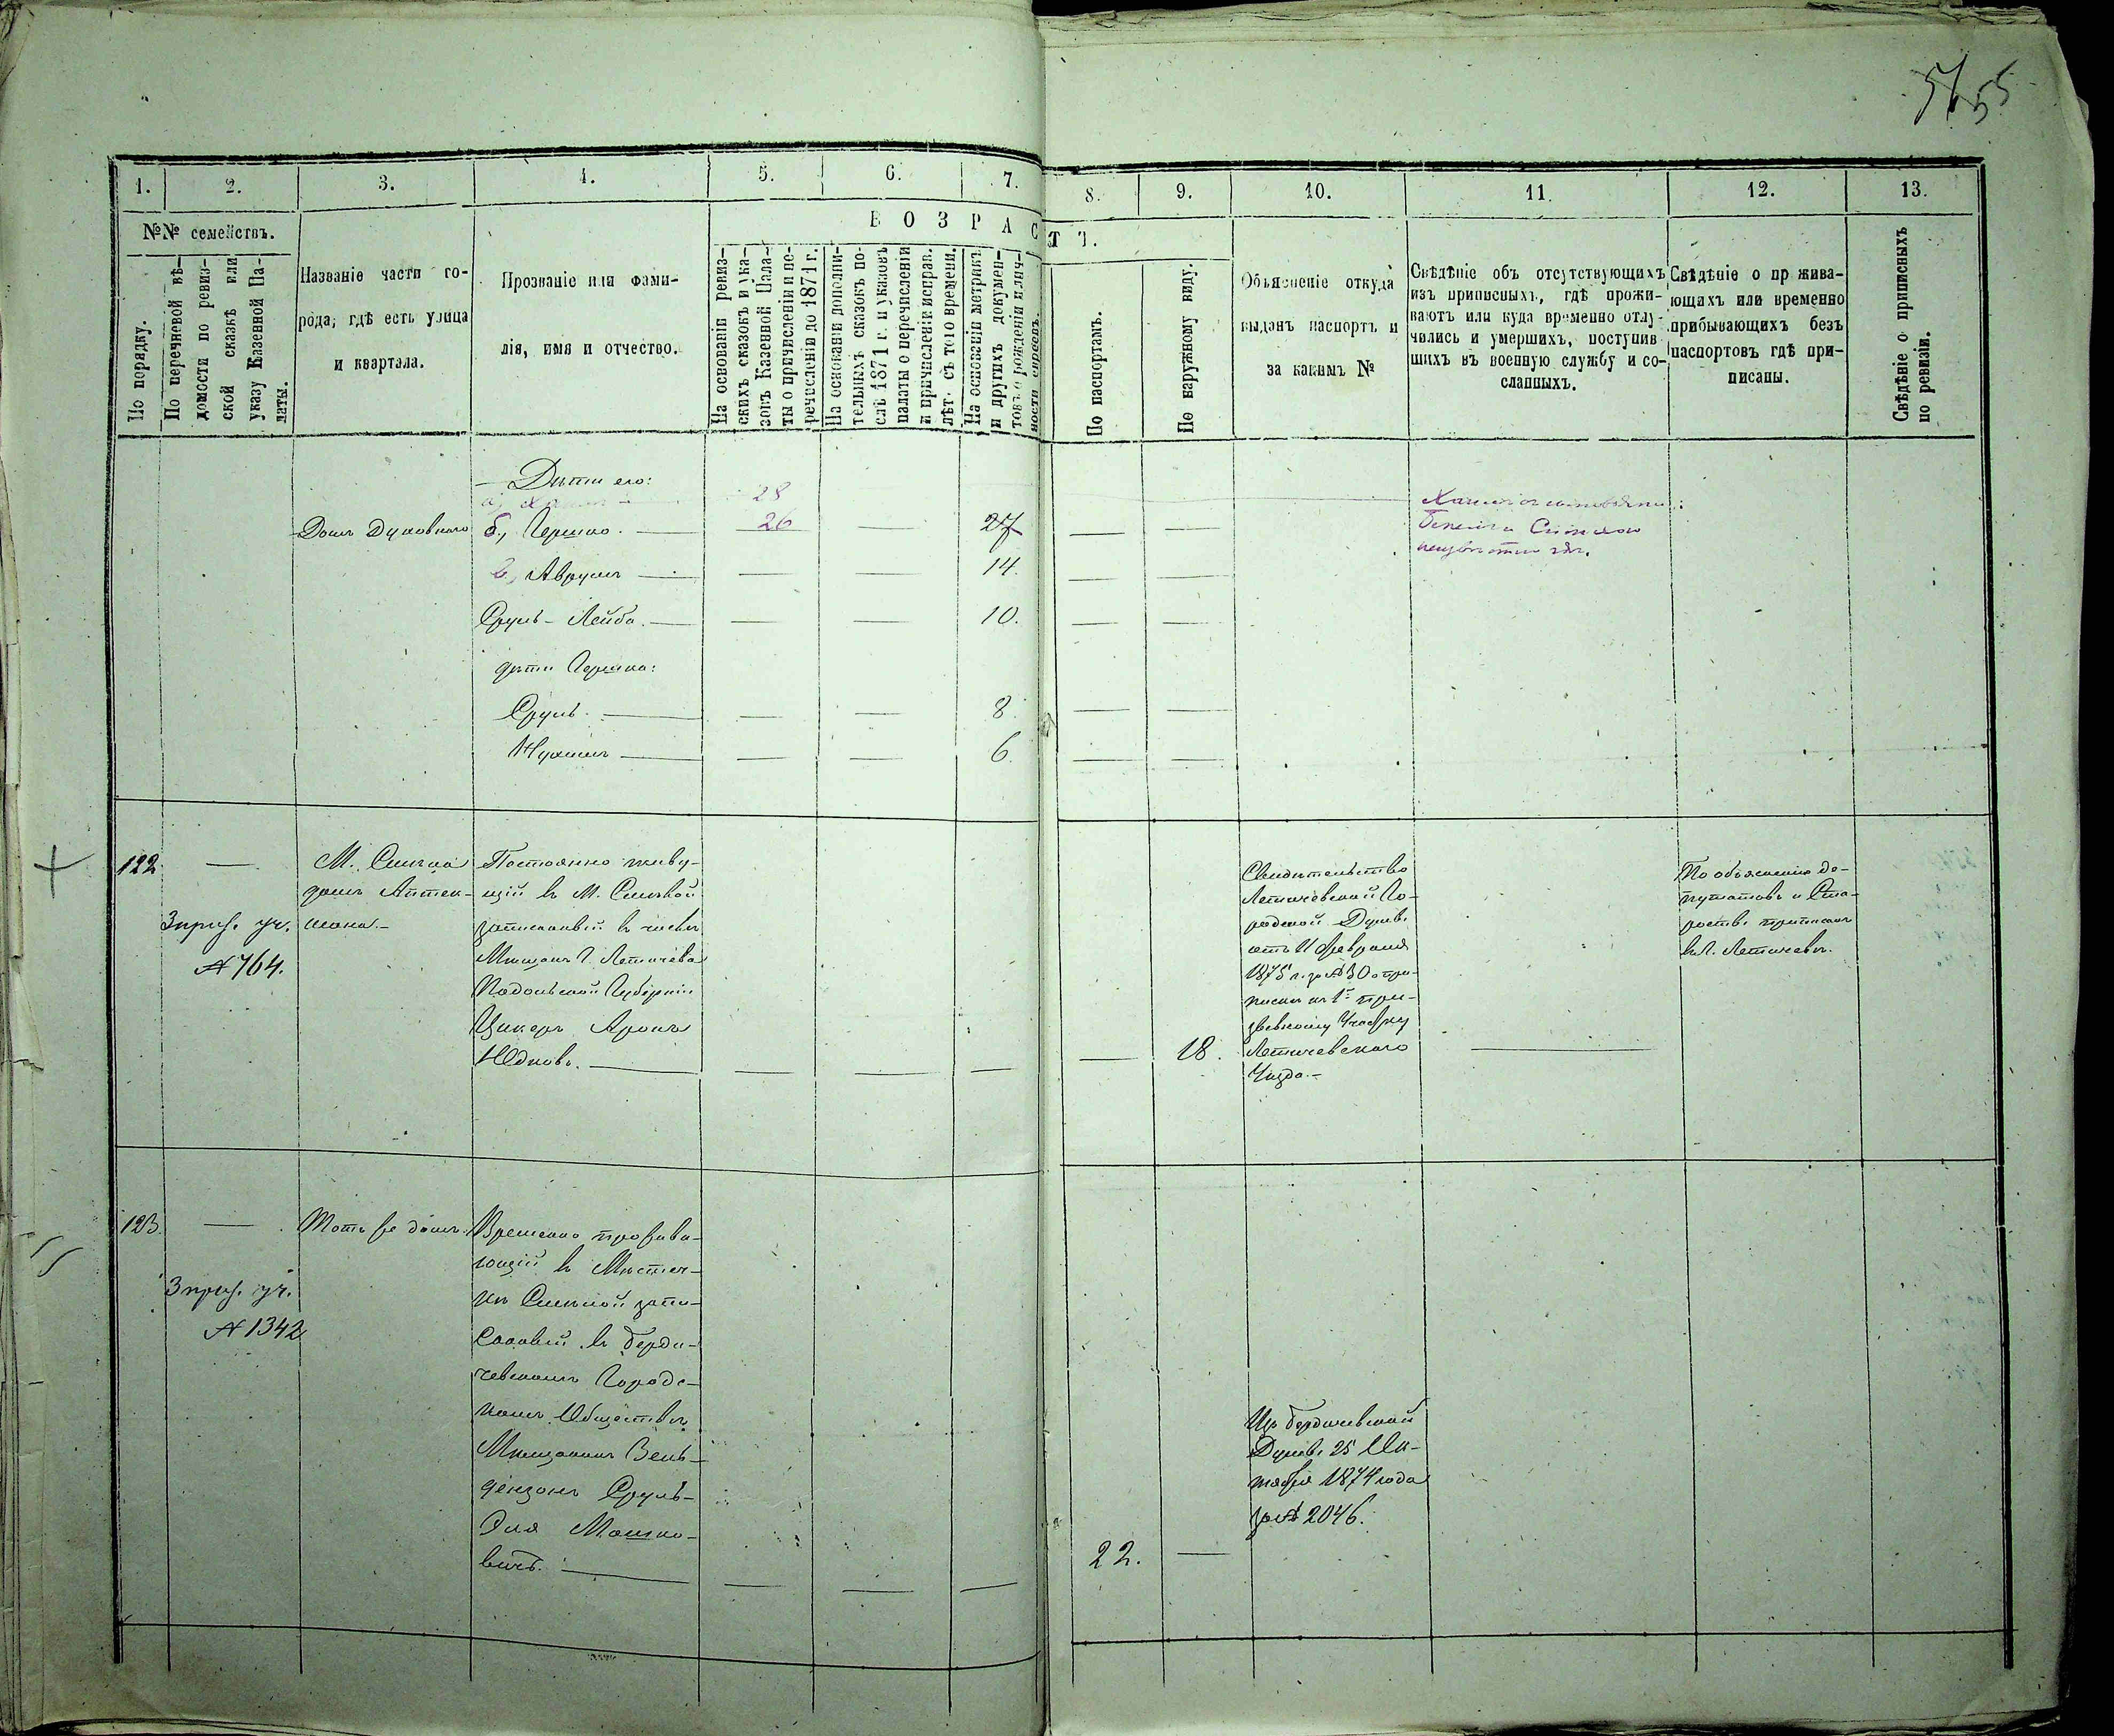 55
1.
2.
3.
4.
5.
6.
7.
8.
9.
10.
11.
12.
13.
№№ семействъ.
По порядку.
По перечневой вѣ-
домости по ревиз-
ской сказкѣ или
указу Казенной Па-
латы.
Названіе части го-
рода, гдѣ есть улица
и квартала.
Прозваніе или фами-
лія, имя и отчество.
ВОЗРАСТЪ.
На основаніи ревиз-
скихъ сказокъ и ука-
зовъ Казенной Пала-
ты о причисленіи и пе-
речисленіи до 1871 г.
На основани дополни-
тельныхъ сказокъ по-
слѣ 1871 г. и указовъ
палаты о перечисленіи
и причисленіи: исправ.
лѣт. съ того времени.
На основаніи метрикъ
и другихъ докумен-
товъ о рожденіи и лич-
ности евреевъ.
По паспортамъ.
По наружному виду.
Объясненіе откуда
выданъ паспортъ и
за какимъ №
Свѣдѣніе объ отсутствующихъ
изъ приписныхъ, гдѣ прожи-
ваютъ или куда временно отлу-
чились и умершихъ, поступив
шихъ въ военную службу и со-
сланныхъ.
Свѣдѣніе о пр жива-
ющихъ или временно
прибывающихъ безъ
паспортовъ гдѣ при-
писаны.
Свѣдѣніе о приписныхъ
по ревизіи.
Дѣти его:
а, 28
Домъ Духовнаго б, Гершко. 26 27
в, Аврумъ 14.
Сруль-Лейба. 10.
дѣти Гершка:
Сруль. 8
Нухимъ 6.
122
3 приз. уч.
№ 764.
М.
домъ Аптек-
мана.
Постоянно живу-
щій въ М.
записанный въ числѣ
Мѣщанъ Г. Летичева
Подольской Губерніи
Цукеръ Аронъ
Юдковъ.
18.
Свидѣтельство
Летичевской Го-
родской Думы
отъ 11 Февраля
1875 г. за № 30 о при-
пискѣ къ 1й при-
зывному Участку
Летичевскаго
Уѣзда.
По объясненію де-
путатовъ и Ста-
росты приписанъ
въ Г. Летичевѣ.
123.
3 приз. уч.
№ 1342
Тотъ же домъ.
Временно прожива-
ющій въ Мѣстеч-
кѣ запи-
санный въ Берди-
чевскомъ Городс-
комъ Обществѣ
Мѣщанинъ Вень-
дензонъ Сруль-
Эля Мошко-
вичъ.
22.
Изъ Бердичевской
Думы 25 Ок-
тября 1874 года
за № 2046.